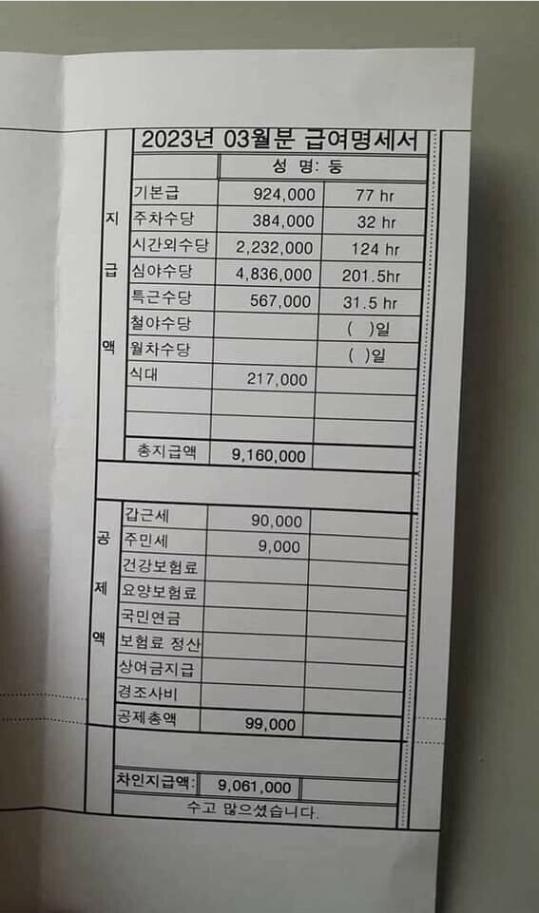 2023년 03월분 급여명세서
성 명: 둥
지 급 액
기본급 924,000 77 hr
주차수당 384,000 32 hr
시간외수당 2,232,000 124 hr
심야수당 4,836,000 201.5hr
특근수당 567,000 31.5 hr
철야수당 ( )일
월차수당 ( )일
식대 217,000
총지급액 9,160,000
공 제 액
갑근세 90,000
주민세 9,000
건강보험료
요양보험료
국민연금
보험료 정산
상여금지급
경조사비
공제총액 99,000
차인지급액: 9,061,000
수고 많으셨습니다.